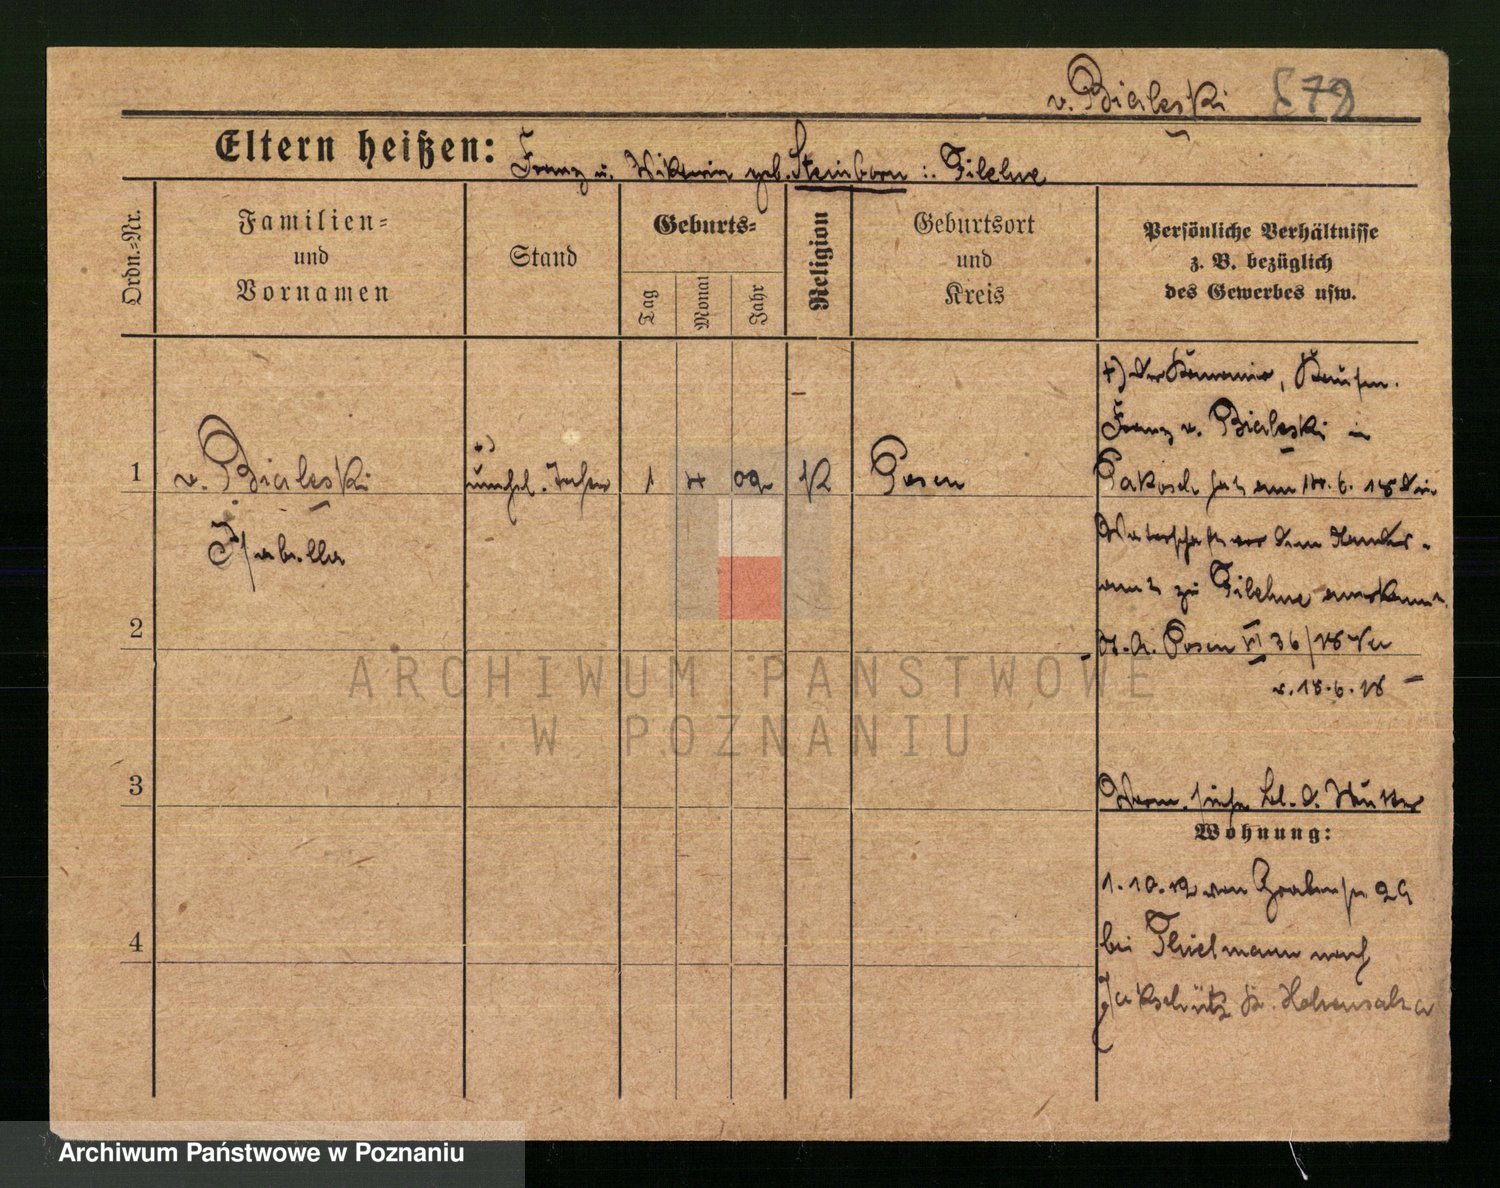 v. Bialeski E 78
Eltern heißen: Franz u. Viktoria geb. Steinborn i. Filehne
Ordn.=Nr.
Familien=
und
Vornamen
Stand
Geburts=
Tag
Monat
Jahr
Religion
Geburtsort
und
Kreis
Persönliche Verhältnisse
z. B. bezüglich
des Gewerbes usw.
1
v. Bialeski
Isabella
+)
unehel. Tochter
1
4
09
K
Posen
+) Der Kaufm.
Franz v. Bialeski in
Pakosch hat am 14. 6. 18 die
Vaterschaft vor dem Standes-
amt zu Filehne anerkannt.
St. A. Posen VI 36/18 Ver
v. 18.6.18
2
3
4
Verm. siehe bl. d. Mutter
Wohnung:
1.10.12 von Grabenstr 29
bei Thielmann nach
Jakschütz Kr. Hohensalza
ARCHIWUM PAŃSTWOWE
W POZNANIU
Archiwum Państwowe w Poznaniu